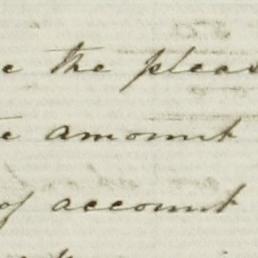 e the pleas
e amount
of account